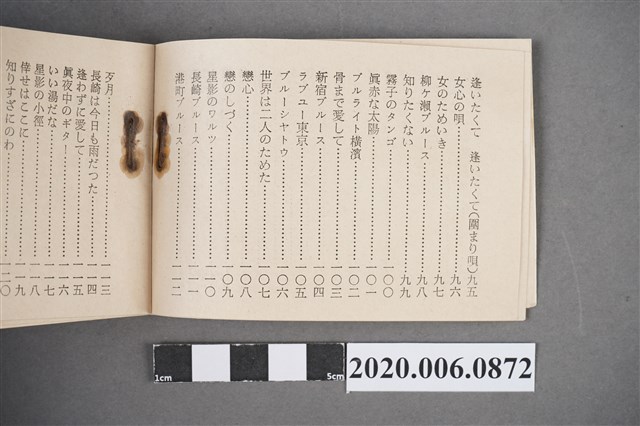 逢いたくて　逢いたくて(園まり唄)九五
女心の唄……九六
女のためいき……九七
柳ヶ瀬ブルース……九八
知りたくない……九九
霧子のタンゴ……一〇〇
眞赤な太陽……一〇一
ブルライト横濱……一〇二
骨まで愛して……一〇三
新宿ブルース……一〇四
ラブユー東京……一〇五
ブルーシヤトウ……一〇六
世界は二人のためた……一〇七
戀心……一〇八
戀のしづく……一〇九
星影のワルツ……一一〇
長崎ブルース……一一一
港町ブルース……一一二
歹月……一一三
長崎は今日も雨だつた……一一四
逢わずに愛して……一一五
眞夜中のギター……一一六
いい湯だな……一一七
星影の小徑……一一八
倖せはここに……一一九
知りすぎにのわ……一二〇
1cm
5cm
2020.006.0872